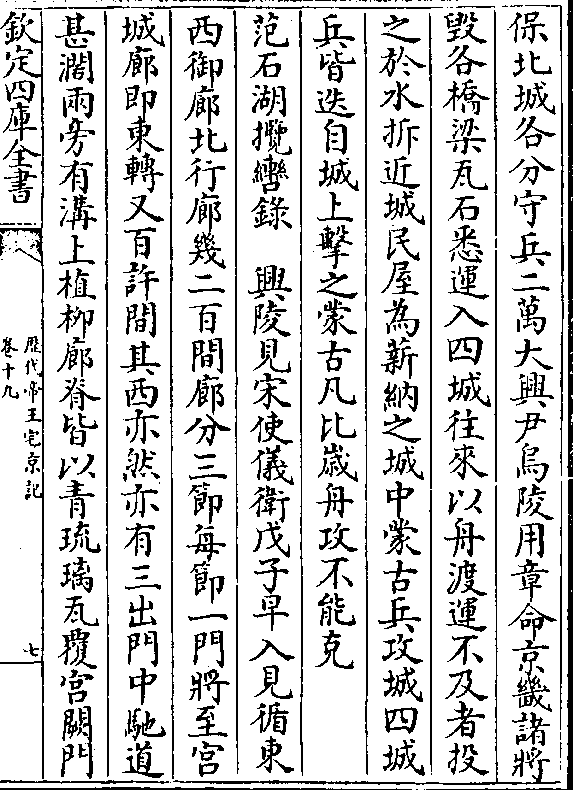 保北城各分守兵二萬大興尹烏陵用章命京畿諸將
毀各橋梁瓦石悉運入四城往來以舟渡運不及者投
之於水拆近城民屋為薪納之城中蒙古兵攻城四城
兵皆迭自城上擊之蒙古凡比歲舟攻不能克
范石湖攬轡錄　興陵見宋使儀衛戊子早入見循東
西御廊北行廊幾二百間廊分三節每節一門將至宮
城廊即東轉又百許間其西亦然亦有三出門中馳道
甚濶兩旁有溝上植柳廊脊皆以青琉璃瓦覆宮闕門
欽定四庫全書
歷代帝王宅京記
卷十九
七